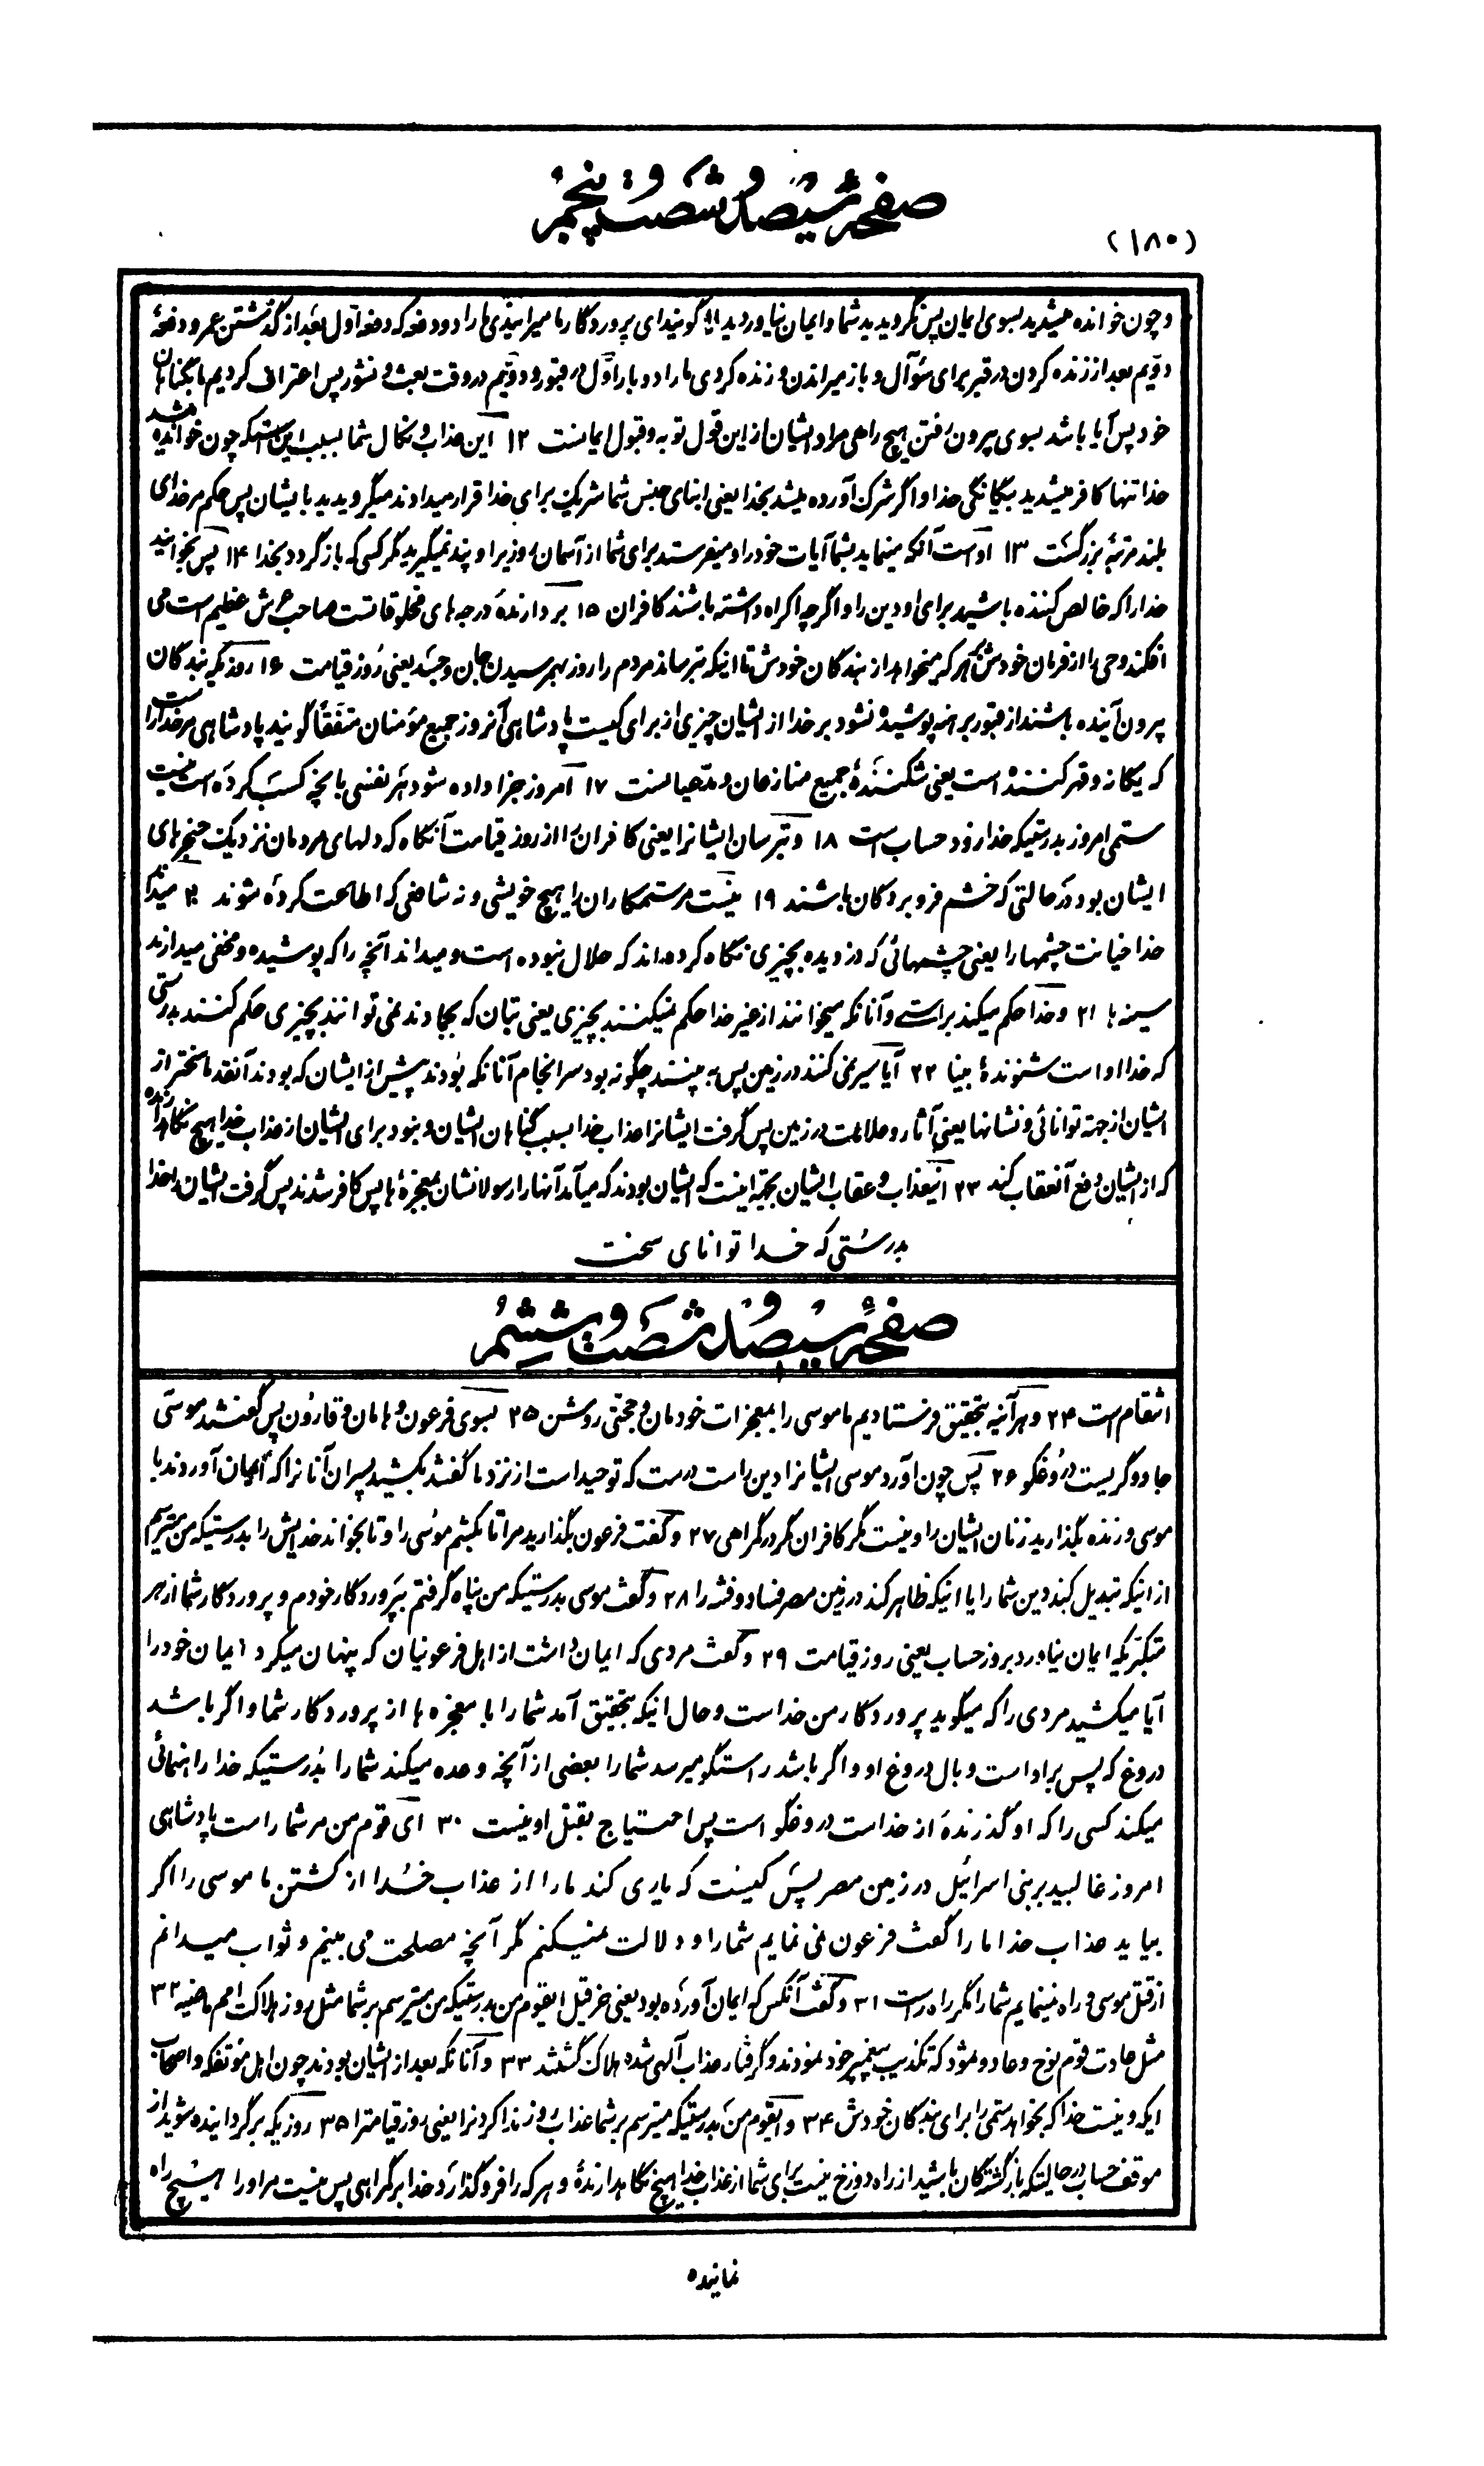 صفحهٔ سیصد و شصت و پنجم
(۱۸۰)
و چون خوانده میشدید بسوی ایمان پس نگرویدید شما و ایمان نیاوردید ۱۱ گویند ای پروردگار ما میرانیدی ما را دو دفعه که دفعه اول بعد از گذشتن عمر و دفعهٔ
دویم بعد از زنده کردن در قبر برای سؤال و باز میراندن و زنده کردی ما را دو بار اول در قبور و دویم در وقت بعث و نشور پس اعتراف کردیم ما بگناهان
خود پس آیا باشد بسوی بیرون رفتن هیچ راهی مراد ایشان از این قول توبه و قبول ایمانست ۱۲ این عذاب و نکال شما بسبب این استکه چون خوانده میشد
خدا تنها کافر میشدید بیگانگی خدا و اگر شرک آورده میشد بخدا یعنی ابنای جنس شما شریک برای خدا قرار میدادند میگرویدید بایشان پس حکم مر خدای
بلند مرتبهٔ بزرگست ۱۳ اوست آنکه مینماید بشما آیات خود را و میفرستد برای شما از آسمان روزیرا و پند نمیگیرید مگر کسی که باز گردد بخدا ۱۴ پس بخوانید
خدا را که خالص کننده باشید برای او دین را و اگر چه اکراه داشته باشند کافران ۱۵ بردارندهٔ درجه های مخلوقاتست صاحب عرش عظیم است می
افکند وحی را از فرمان خودش بهر که میخواهد از بندگان خودش تا اینکه بترساند مردم را روز بهم رسیدن جان و جسد یعنی روز قیامت ۱۶ روزیکه بندگان
بیرون آینده باشند از قبور برهنه پوشیده نشود بر خدا از ایشان چیزی از برای کیست پادشاهی آنروز جمیع مؤمنان متفقاً گویند پادشاهی مر خدا راست
که یگانه و قهر کننده است یعنی شکنندهٔ جمیع منازعان و مدعیانست ۱۷ امروز جزا داده شود هر نفسی بآنچه کسب کرده است نیست
ستمی امروز بدرستیکه خدا زود حساب است ۱۸ و بترسان ایشانرا یعنی کافران را از روز قیامت آنگاه که دلهای مردمان نزدیک حنجرهای
ایشان بود در حالتی که خشم فرو بردگان باشند ۱۹ نیست مر ستمکاران را هیچ خویشی و نه شافعی که اطاعت کرده شوند ۲۰ میداند
خدا خیانت چشمها را یعنی چشمهائی که دزدیده بچیزی نگاه کرده اند که حلال نبوده است و میداند آنچه را که پوشیده و مخفی میدارند
سینه ها ۲۱ و خدا حکم میکند براستی و آنانکه میخوانند از غیر خدا حکم نمیکنند بچیزی یعنی بتان که جمادند نمی توانند بچیزی حکم کنند بدرستی
که خدا او است شنوندهٔ بینا ۲۲ آیا سیر نمی کنند در زمین پس به بینند چگونه بود سرانجام آنانکه بودند پیش از ایشان که بودند آنقدما سختر از
ایشان از جهة توانائی و نشانها یعنی آثار و علامت در زمین پس گرفت ایشانرا عذاب خدا بسبب گناهان ایشان و نبود برای ایشان از عذاب خدا هیچ نگاهدارنده
که از ایشان دفع آنعقاب کند ۲۳ اینعذاب و عقاب ایشان بجهة اینست که ایشان بودند که میآمد آنها را رسولانشان بمعجزهٔ ها پس کافر شدند پس گرفت ایشان را خدا
بدرستی که خدا توانای سخت
صفحهٔ سیصد و شصت و ششم
انتقام است ۲۴ و هر آینه بتحقیق فرستادیم ما موسی را بمعجزات خودمان و حجتی روشن ۲۵ بسوی فرعون و هامان و قارون پس گفتند موسی
جادوگریست دروغگو ۲۶ پس چون آورد موسی ایشانرا دین راست درست که توحید است از نزد ما گفتند بکشید پسران آنانرا که ایمان آوردند با
موسی و زنده بگذارید زنان ایشان را و نیست مکر کافران مگر در گمراهی ۲۷ و گفت فرعون بگذارید مرا تا بکشم موسی را و تا بخواند خدایش را بدرستیکه من میترسم
از اینکه تبدیل کند دین شما را یا اینکه ظاهر کند در زمین مصر فساد و فتنه را ۲۸ و گفت موسی بدرستیکه من پناه گرفتم بپروردگار خودم و پروردگار شما از هر
متکبریکه ایمان نیاورد بروز حساب یعنی روز قیامت ۲۹ و گفت مردی که ایمان داشت از اهل فرعونیان که پنهان میکرد ایمان خود را
آیا میکشید مردی را که میگوید پروردگار من خداست و حال اینکه بتحقیق آمد شما را با معجزه ها از پروردگار شما و اگر باشد
دروغ که پس بر او است و بال دروغ او و اگر باشد راستگو میرسد شما را بعضی از آنچه وعده میکند شما را بدرستیکه خدا راهنمائی
میکند کسی را که او گذرندهٔ از خداست دروغگو است پس احتیاج بقتل او نیست ۳۰ ای قوم من مر شما راست پادشاهی
امروز غالبید بر بنی اسرائیل در زمین مصر پس کیست که یاری کند ما را از عذاب خدا از کشتن ما موسی را اگر
بیاید عذاب خدا ما را گفت فرعون نمی نمایم شما را و دلالت نمیکنم مگر آنچه مصلحت می بینم و ثواب میدانم
از قتل موسی و راه نمینمایم شما را مگر راه راست ۳۱ و گفت آنکس که ایمان آورده بود یعنی خرقیل ایقوم من بدرستیکه من میترسم بر شما مثل روز هلاکت امم ماضیه ۳۲
مثل عادت قوم نوح و عاد و ثمود که تکذیب پیغمبر خود نمودند و گرفتار عذاب آلهی شده هلاک گشتند ۳۳ و آنانکه بعد از ایشان بودند چون اهل مؤتفکه و اصحاب
ایکه و نیست خدا که بخواهد ستمی را برای بندگان خودش ۳۴ و ایقوم من بدرستیکه میترسم بر شما عذاب روز ندا کردنرا یعنی روز قیامترا ۳۵ روزیکه برگردانیده شوید از
موقف حساب در حالیتکه بازگشتگان باشید از راه دوزخ نیست برای شما از عذاب خدا هیچ نگاهدارندهٔ و هر که را فرو گذارد خدا بر گمراهی پس نیست مر او را هیچ راه
نماینده